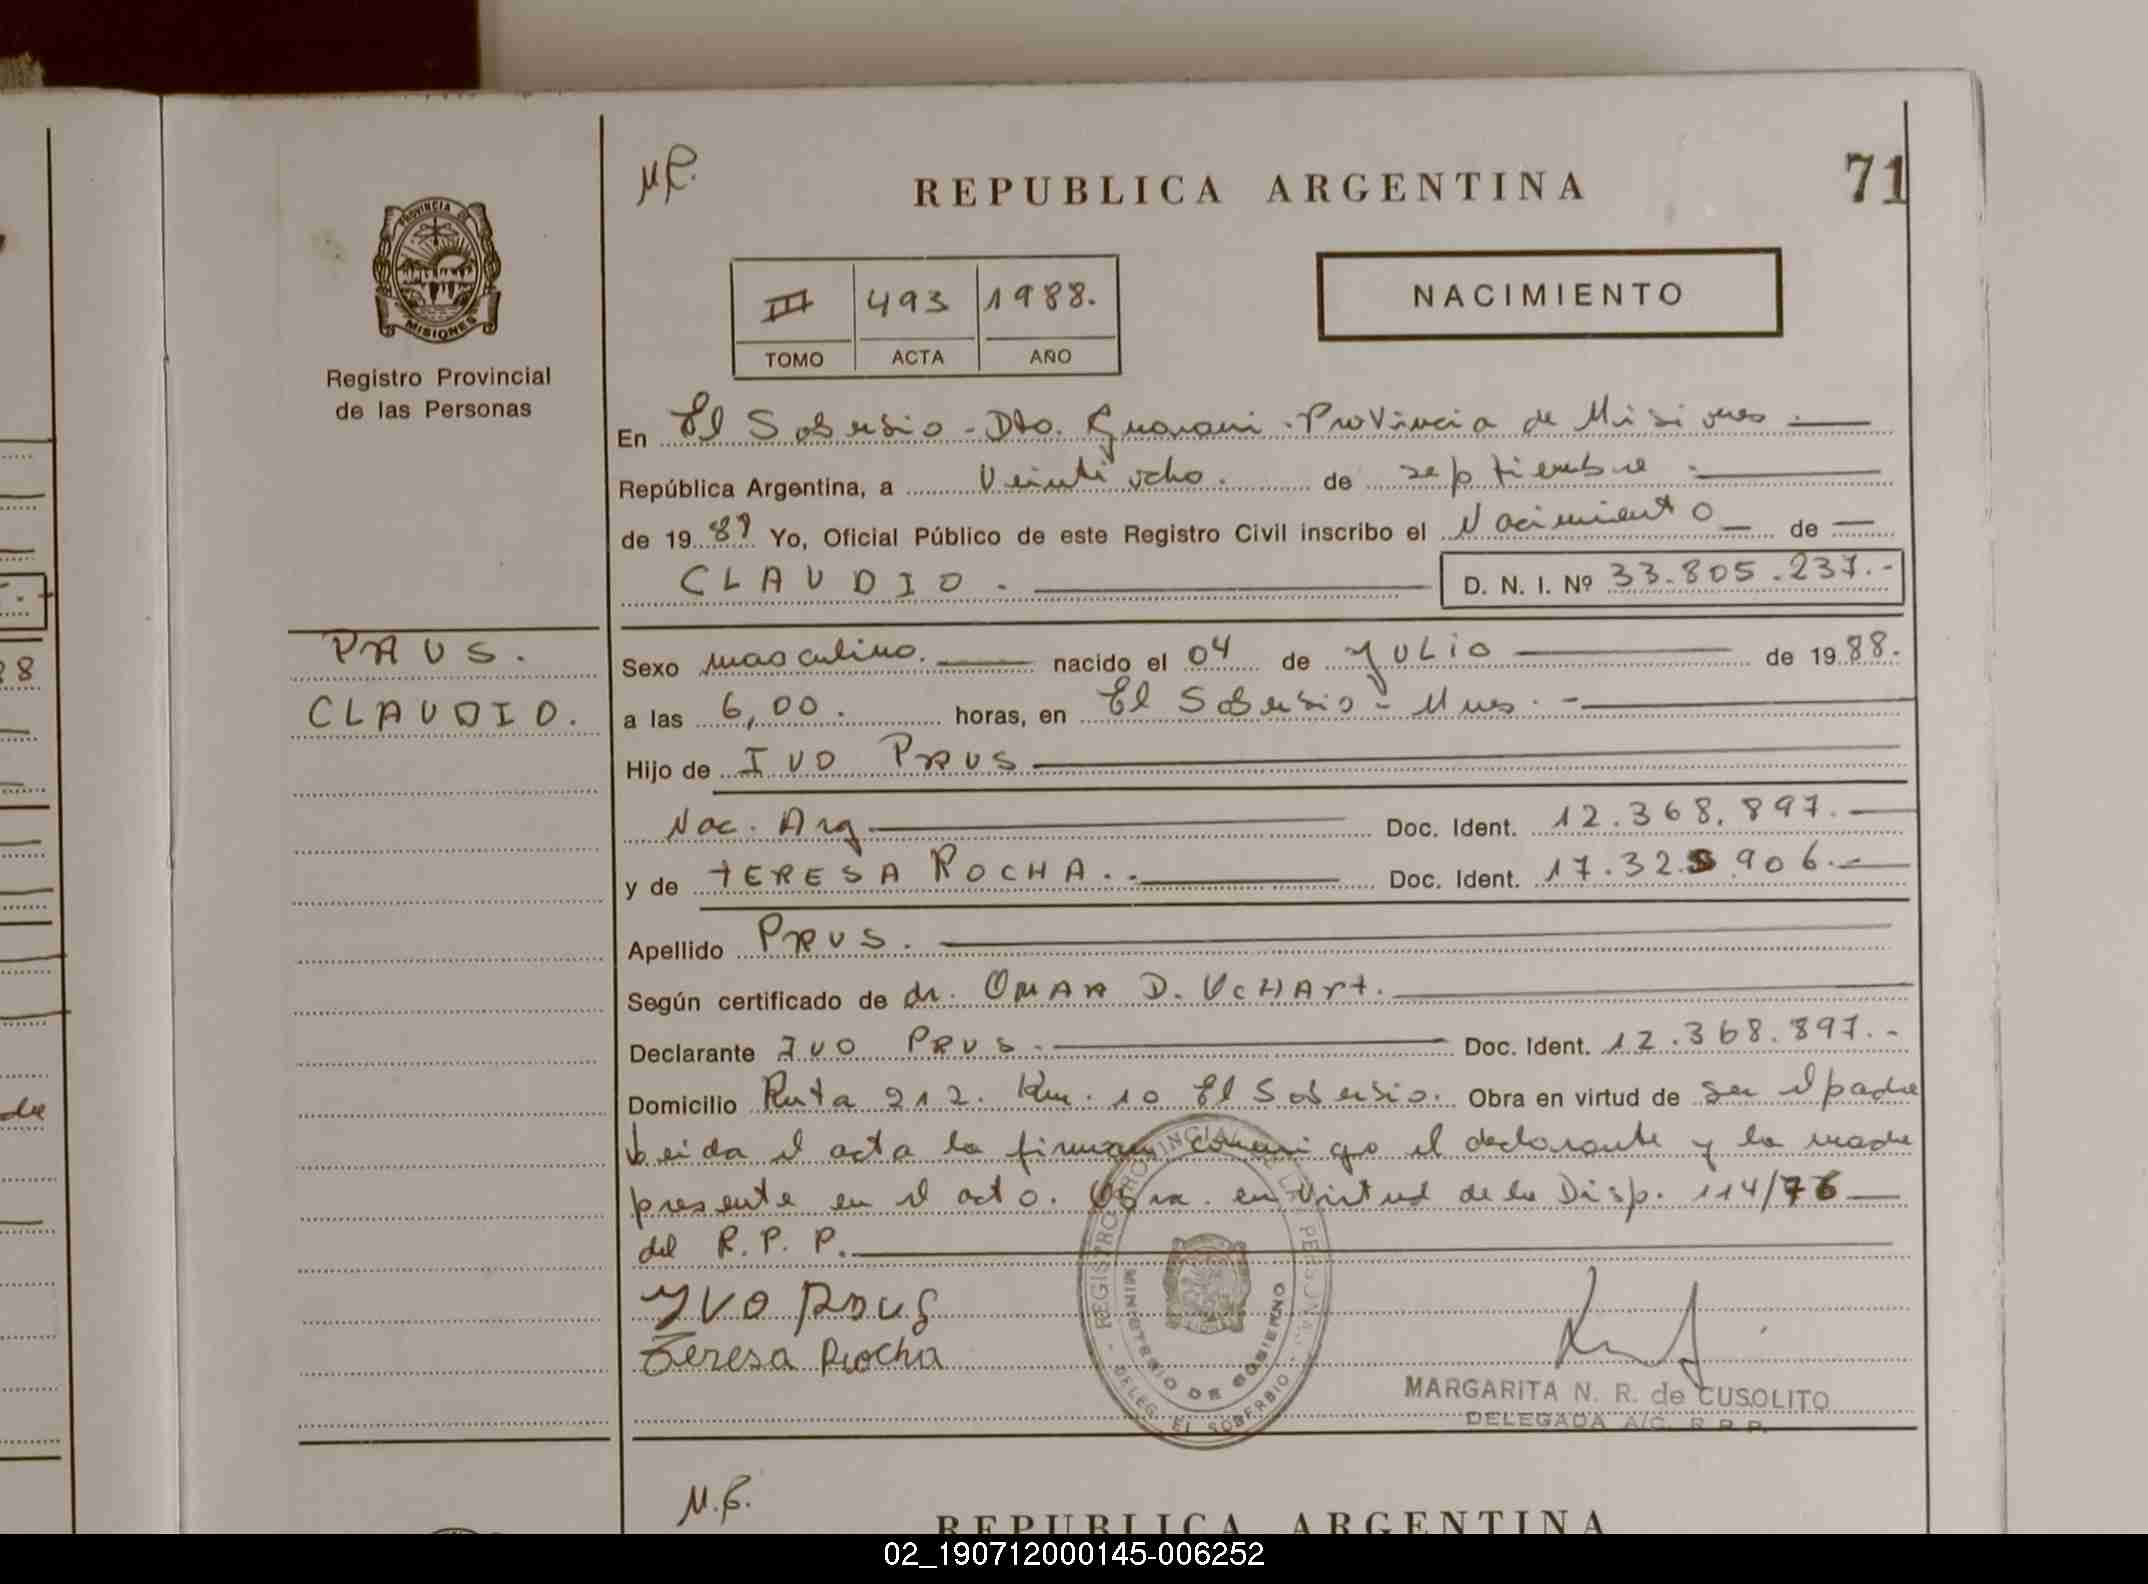 M.R.
REPUBLICA ARGENTINA
71
PROVINCIA DE
MISIONES
Registro Provincial
de las Personas
III 493 1988.
TOMO ACTA AÑO
NACIMIENTO
En El Soberbio - Dto. Guarani - Provincia de Misiones.
República Argentina, a Veintiocho. de septiembre.
de 1989 Yo, Oficial Público de este Registro Civil inscribo el Nacimiento de
CLAUDIO. D. N. I. Nº 33.805.237.-
PRUS.
CLAUDIO.
Sexo masculino. nacido el 04 de JULIO de 1988.
a las 6,00. horas, en El Soberbio - Mnes.-
Hijo de IVO PRUS
Nac. Arg Doc. Ident. 12.368.897.
y de TERESA ROCHA.. Doc. Ident. 906.-
Apellido PRUS.
Según certificado de dr. OMAR D. UCHART.
Declarante IVO PRUS. Doc. Ident. 12.368.897.-
Domicilio Ruta 212. Km. 10 El Soberbio. Obra en virtud de ser el padre
Leida el acta la firman conmigo el declarante y la madre
presente en el acto. Obra en virtud de la Disp. 114/76
del R. P. P.
Yvo Prus
Teresa Rocha
REGISTRO PROVINCIAL DE LAS PERSONAS - DELEG. EL SOBERBIO -
MINISTERIO DE GOBIERNO
MARGARITA N. R. de CUSOLITO
DELEGADA A/C. R. P. P.
REPUBLICA ARGENTINA
02_190712000145-006252